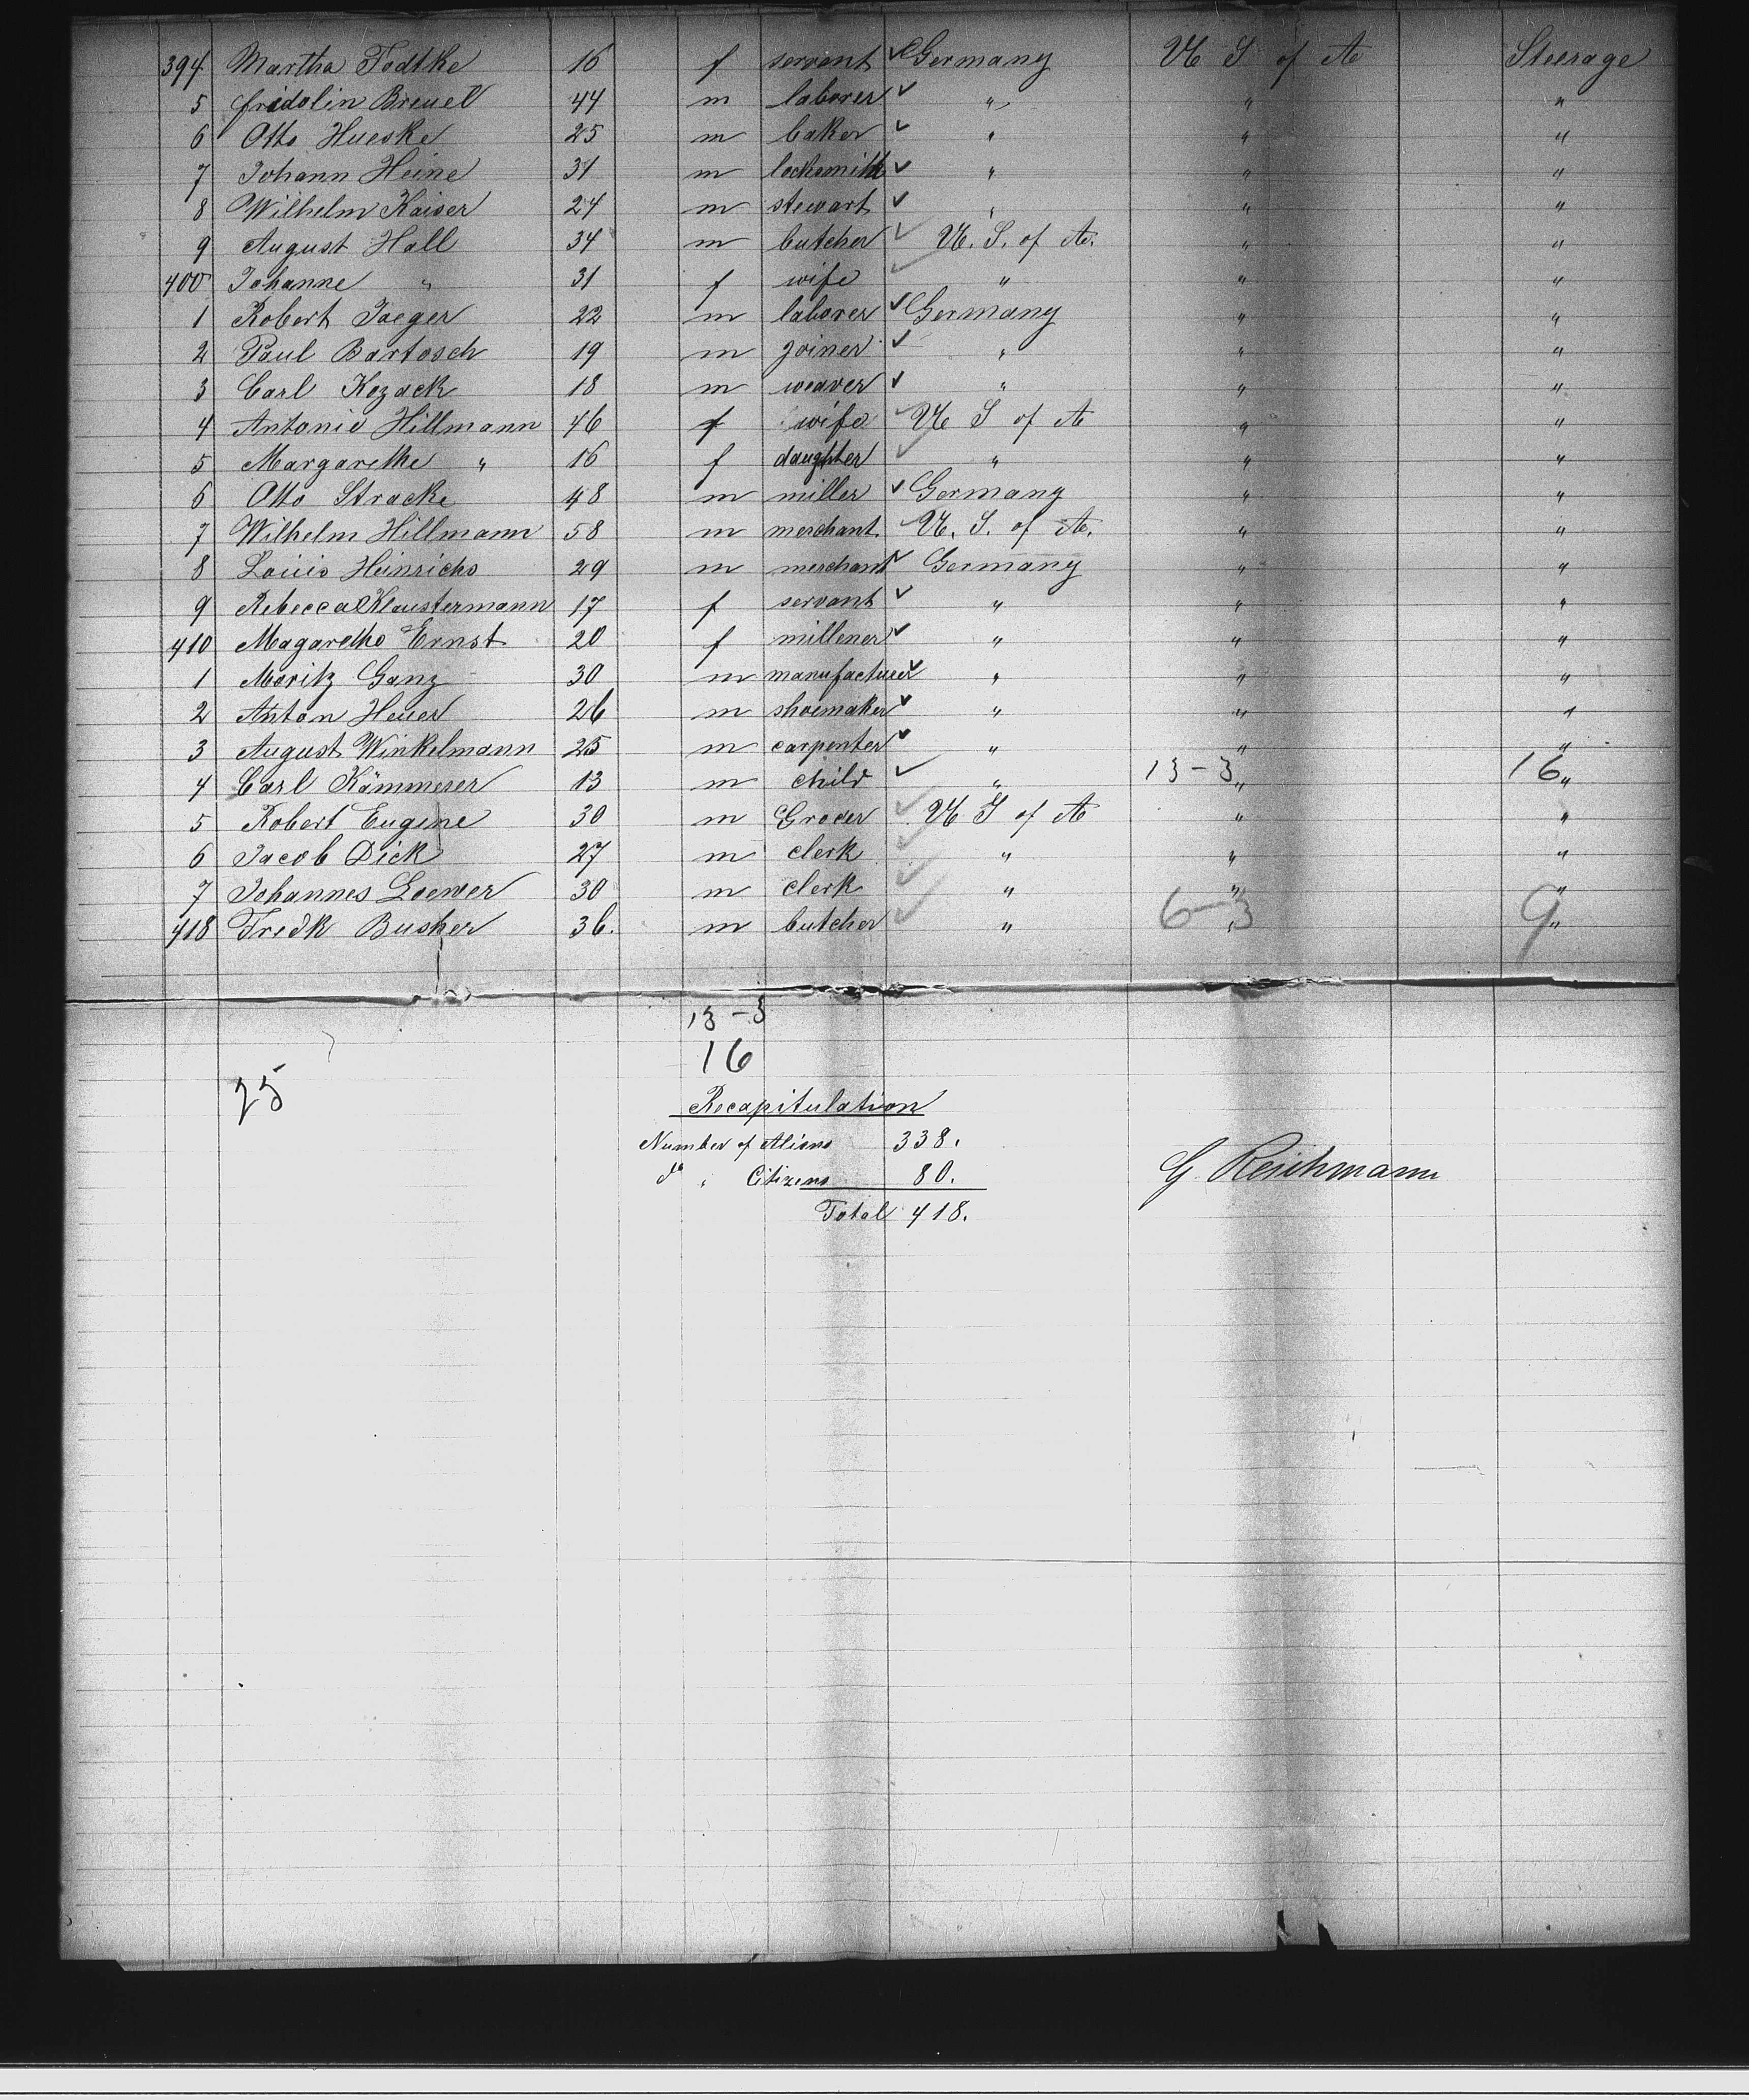 394 Martha Todtke 16 f servant ✓ Germany U S of A Steerage
5 Fridolin Breuel 44 m laborer ✓ " " "
6 Otto Hueske 25 m baker ✓ " " "
7 Johann Heine 31 m locksmith ✓ " " "
8 Wilhelm Kaiser 24 m stewart ✓ " " "
9 August Holl 34 m butcher ✓ U. S. of A. " "
400 Johanne " 31 f wife ✓ " " "
1 Robert Jaeger 22 m laborer ✓ Germany " "
2 Paul Bartosch 19 m joiner ✓ " " "
3 Carl Kozack 18 m weaver ✓ " " "
4 Antonie Hillmann 46 f wife ✓ U S of A " "
5 Margarethe " 16 f daughter ✓ " " "
6 Otto Stracke 48 m miller ✓ Germany " "
7 Wilhelm Hillmann 58 m merchant ✓ U. S. of A. " "
8 Louis Heinrichs 29 m merchant ✓ Germany " "
9 Rebecca Klaustermann 17 f servant ✓ " " "
410 Magarethe Ernst 20 f millener ✓ " " "
1 Moritz Ganz 30 m manufacturer ✓ " " "
2 Anton Heuer 26 m shoemaker ✓ " " "
3 August Winkelmann 25 m carpenter ✓ " " "
4 Carl Kämmerer 13 m child ✓ " 13-3 " 16 "
5 Robert Eugene 30 m Grocer ✓ U S of A " "
6 Jacob Dick 27 m clerk ✓ " " "
7 Johannes Loewer 30 m clerk ✓ " " "
418 Fredk Busher 36. m butcher ✓ " 6-3 " 9 "
13-3
16
25
Recapitulation
Number of Aliens 338.
do " Citizens 80.
G. Reichmann
Total 418.